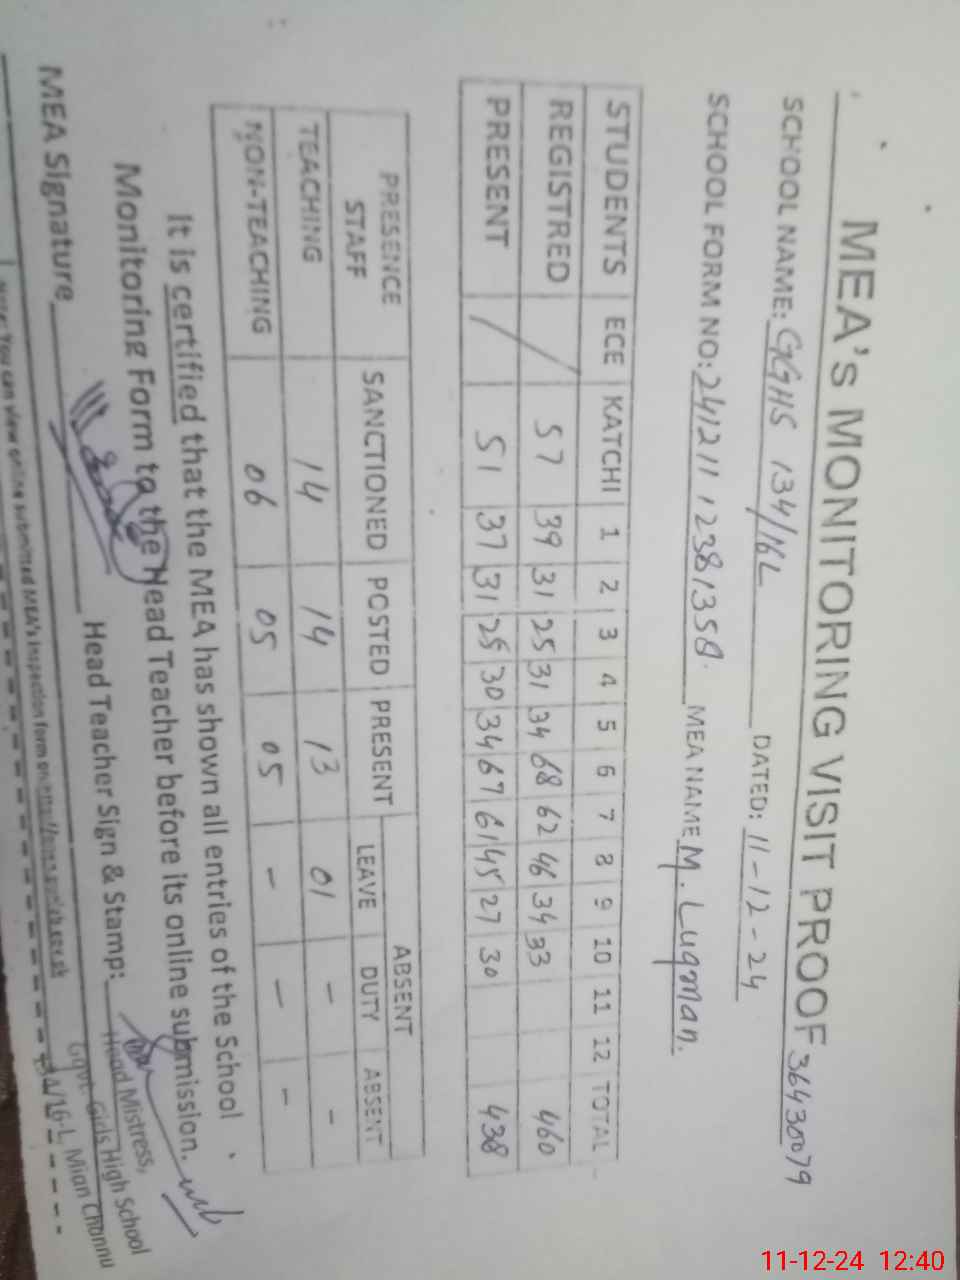 MEA'S MONITORING VISIT PROOF 36430079
SCHOOL NAME: GGHS 134/16L DATED: 11-12-24
SCHOOL FORM NO: 241211 12381358 MEA NAME M. Luqman.
STUDENTS ECE KATCHI 1 2 3 4 5 6 7 8 9 10 11 12 TOTAL
REGISTRED 57 39 31 25 31 34 68 62 46 34 33 460
PRESENT 51 37 31 25 30 34 67 61 45 27 30 438
PRESENCE ABSENT
STAFF SANCTIONED POSTED PRESENT LEAVE DUTY ABSENT
TEACHING 14 14 13 01 - -
NON-TEACHING 06 05 05 - - -
It is certified that the MEA has shown all entries of the School
Monitoring Form to the Head Teacher before its online submission.
MEA Signature Head Teacher Sign & Stamp:
Head Mistress,
Govt. Girls High School
134/16-L, Mian Channu
Note: You can view online submitted MEA's inspection form on
11-12-24 12:40